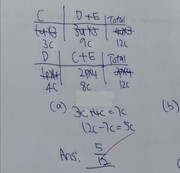 C D + E Total
3c 9c 12c
D C + E Total
4c 8c 12c
(a) 3c + 4c = 7c (b)
12c - 7c = 5c
Ans. 5/12